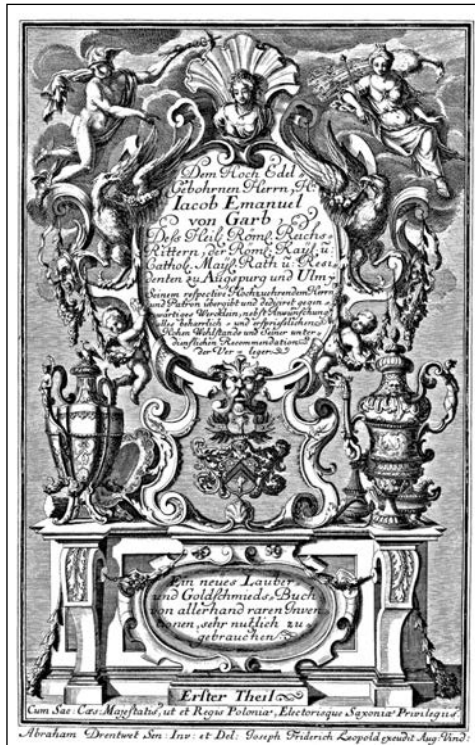 Dem Hoch Edel-
Gebohrnen Herrn, H:
Iacob Emanuel
von Garb,
Deß Heil. Röml: Reichs-
Rittern, der Röml: Kaÿl: ū:
Cathol. Maÿl Rath ū: Resi-
denten zu Augspurg und Ulm
Seinem respective Hochzuehrendem Herrn
und Patron übergibt und dediciret gegen-
wärtiges Wercklein, nebst Anwünschung
alles beharrlich- und ersprießlichen
Hohen Wohlstands und Seiner unter-
dienstlichen Recommendation
der Ver- leger.
Ein neues Lauber-
und Goldschmieds-Buch
von allerhand raren Inven-
tionen, sehr nutzlich zu
gebrauchen
Erster Theil
Cum Sac: Cæs: Majestatis, ut et Regis Poloniæ, Electorisque Saxoniæ Privilegiis.
Abraham Drentwet Sen: Inv: et Del: Joseph Friderich Leopold excudit Aug: Vind: